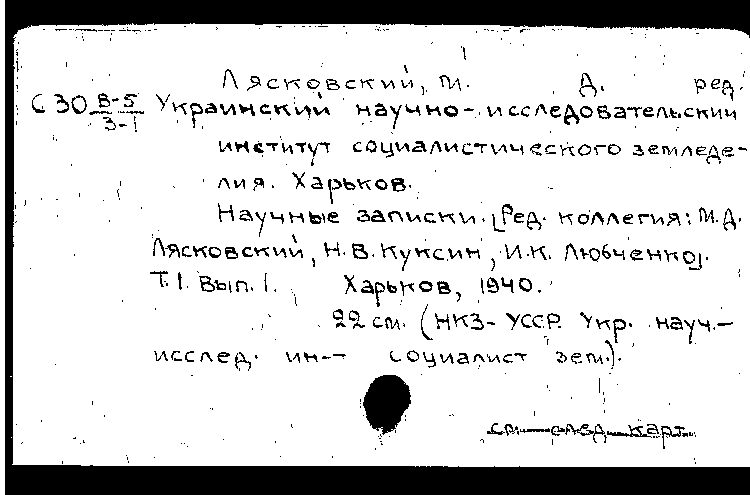 Лясковский, М. Д. ред.
С 30 В-5/3-1 Украинский научно-исследовательский
институт социалистического земледе-
лия. Харьков.
Научные записки. [Ред. коллегия: М.Д.
Лясковский, Н.В. Куксин, И.К. Любченко].
Т.1. Вып.1. Харьков, 1940.
22 см. (НКЗ-УССР. Укр. науч.-
исслед. ин-т социалист зем.).
см. след. карт.